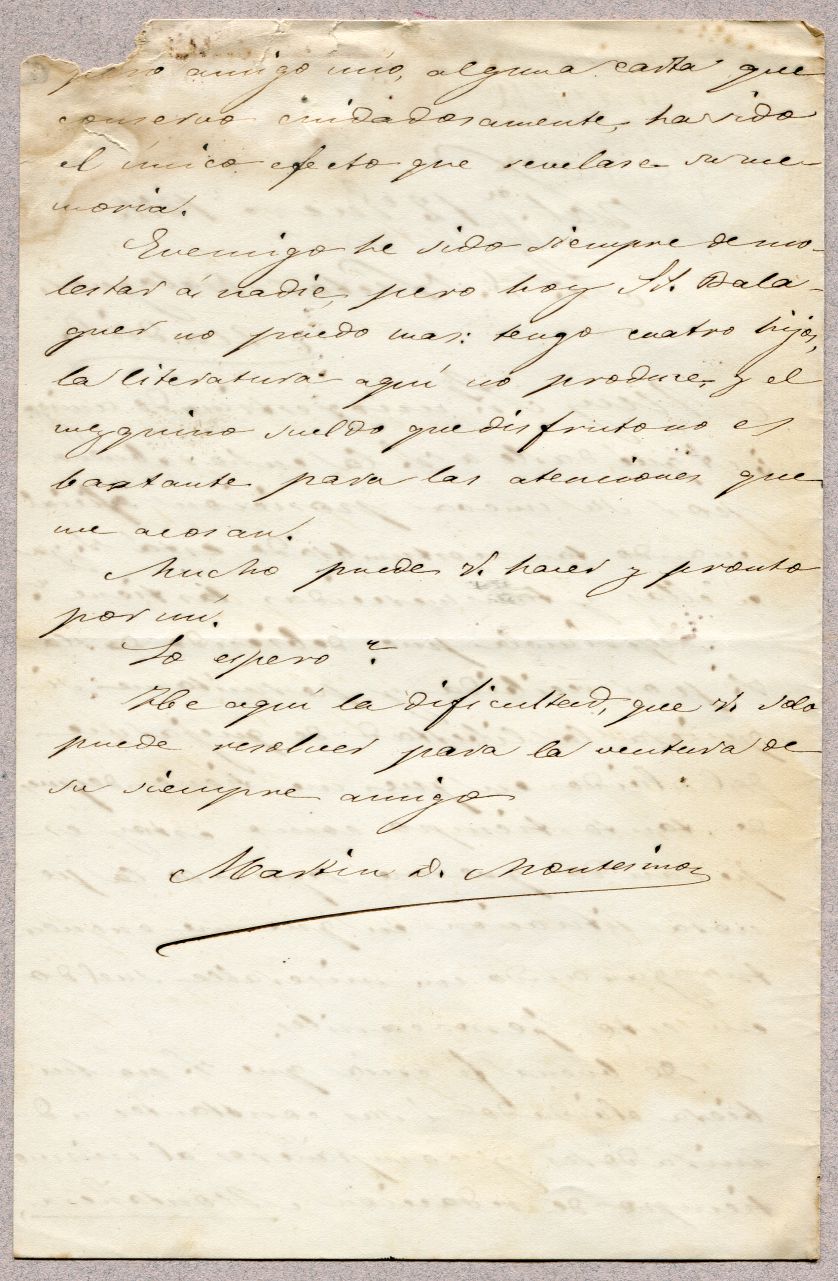 pero amigo mio, alguna carta que
conservo cuidadosamente, ha sido
el único efecto que revelase su me-
moria.
Enemigo he sido siempre de mo-
lestar á nadie, pero hoy Sr. Bala-
guer no puedo mas: tengo cuatro hijos,
la literatura aquí no produce, y el
mezquino sueldo que disfruto no es
bastante para las atenciones que
me acosan.
Mucho puede V. hacer y pronto
por mi.
Lo espero?
He aquí la dificultad, que V. solo
puede resolver para la ventura de
su siempre amigo
Martin D. Montesinos